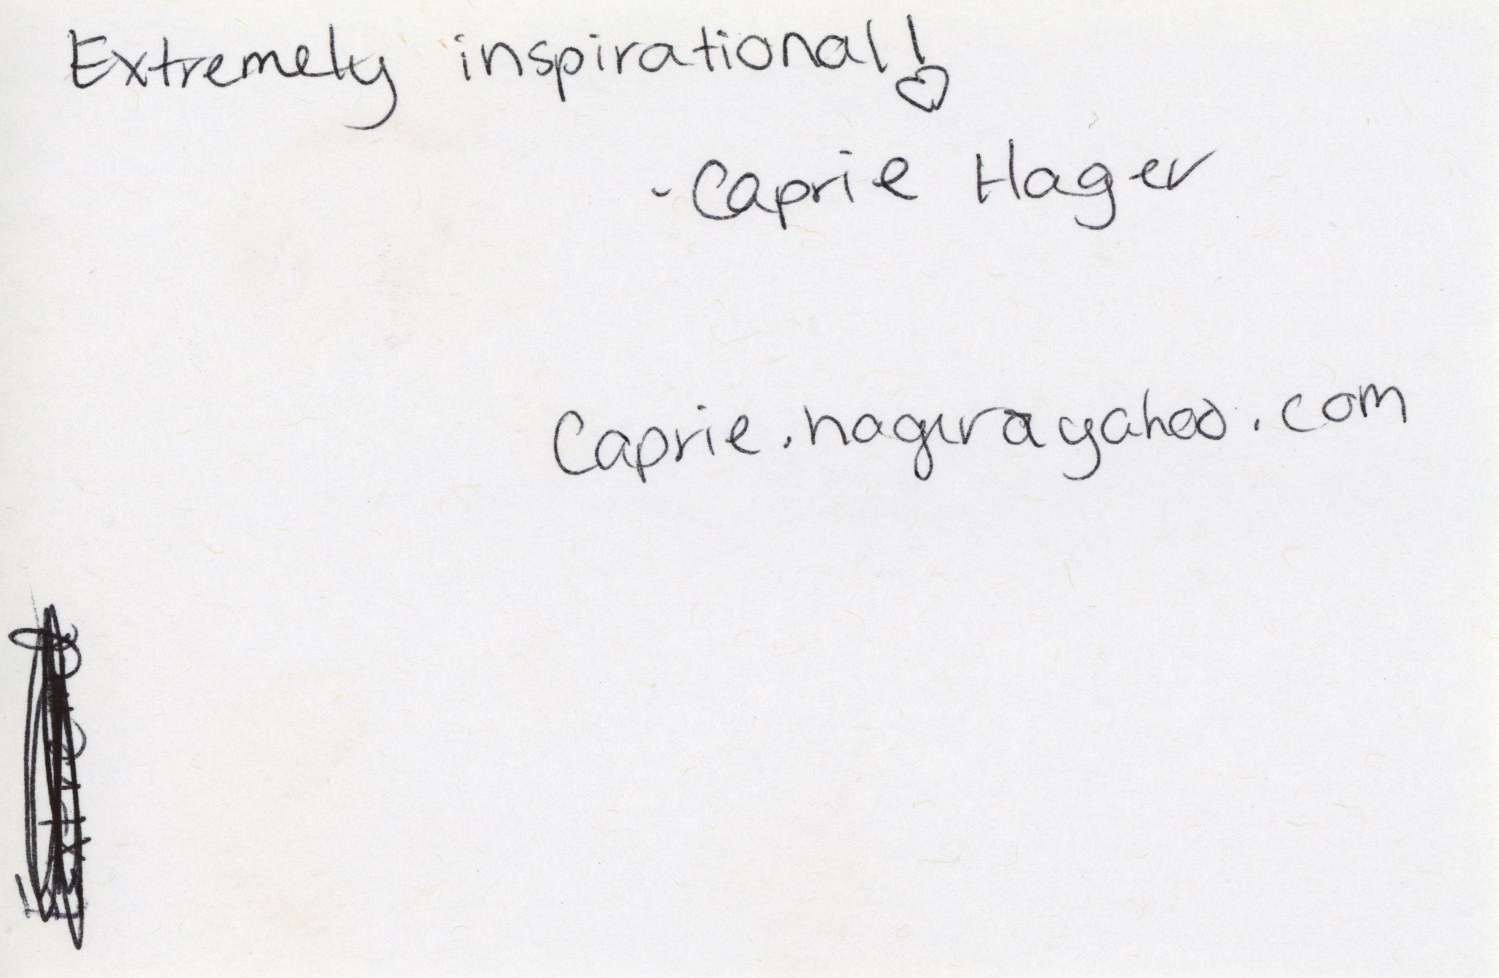 Extremely inspirational!
-Caprie Hager
Caprie.hager@yahoo.com